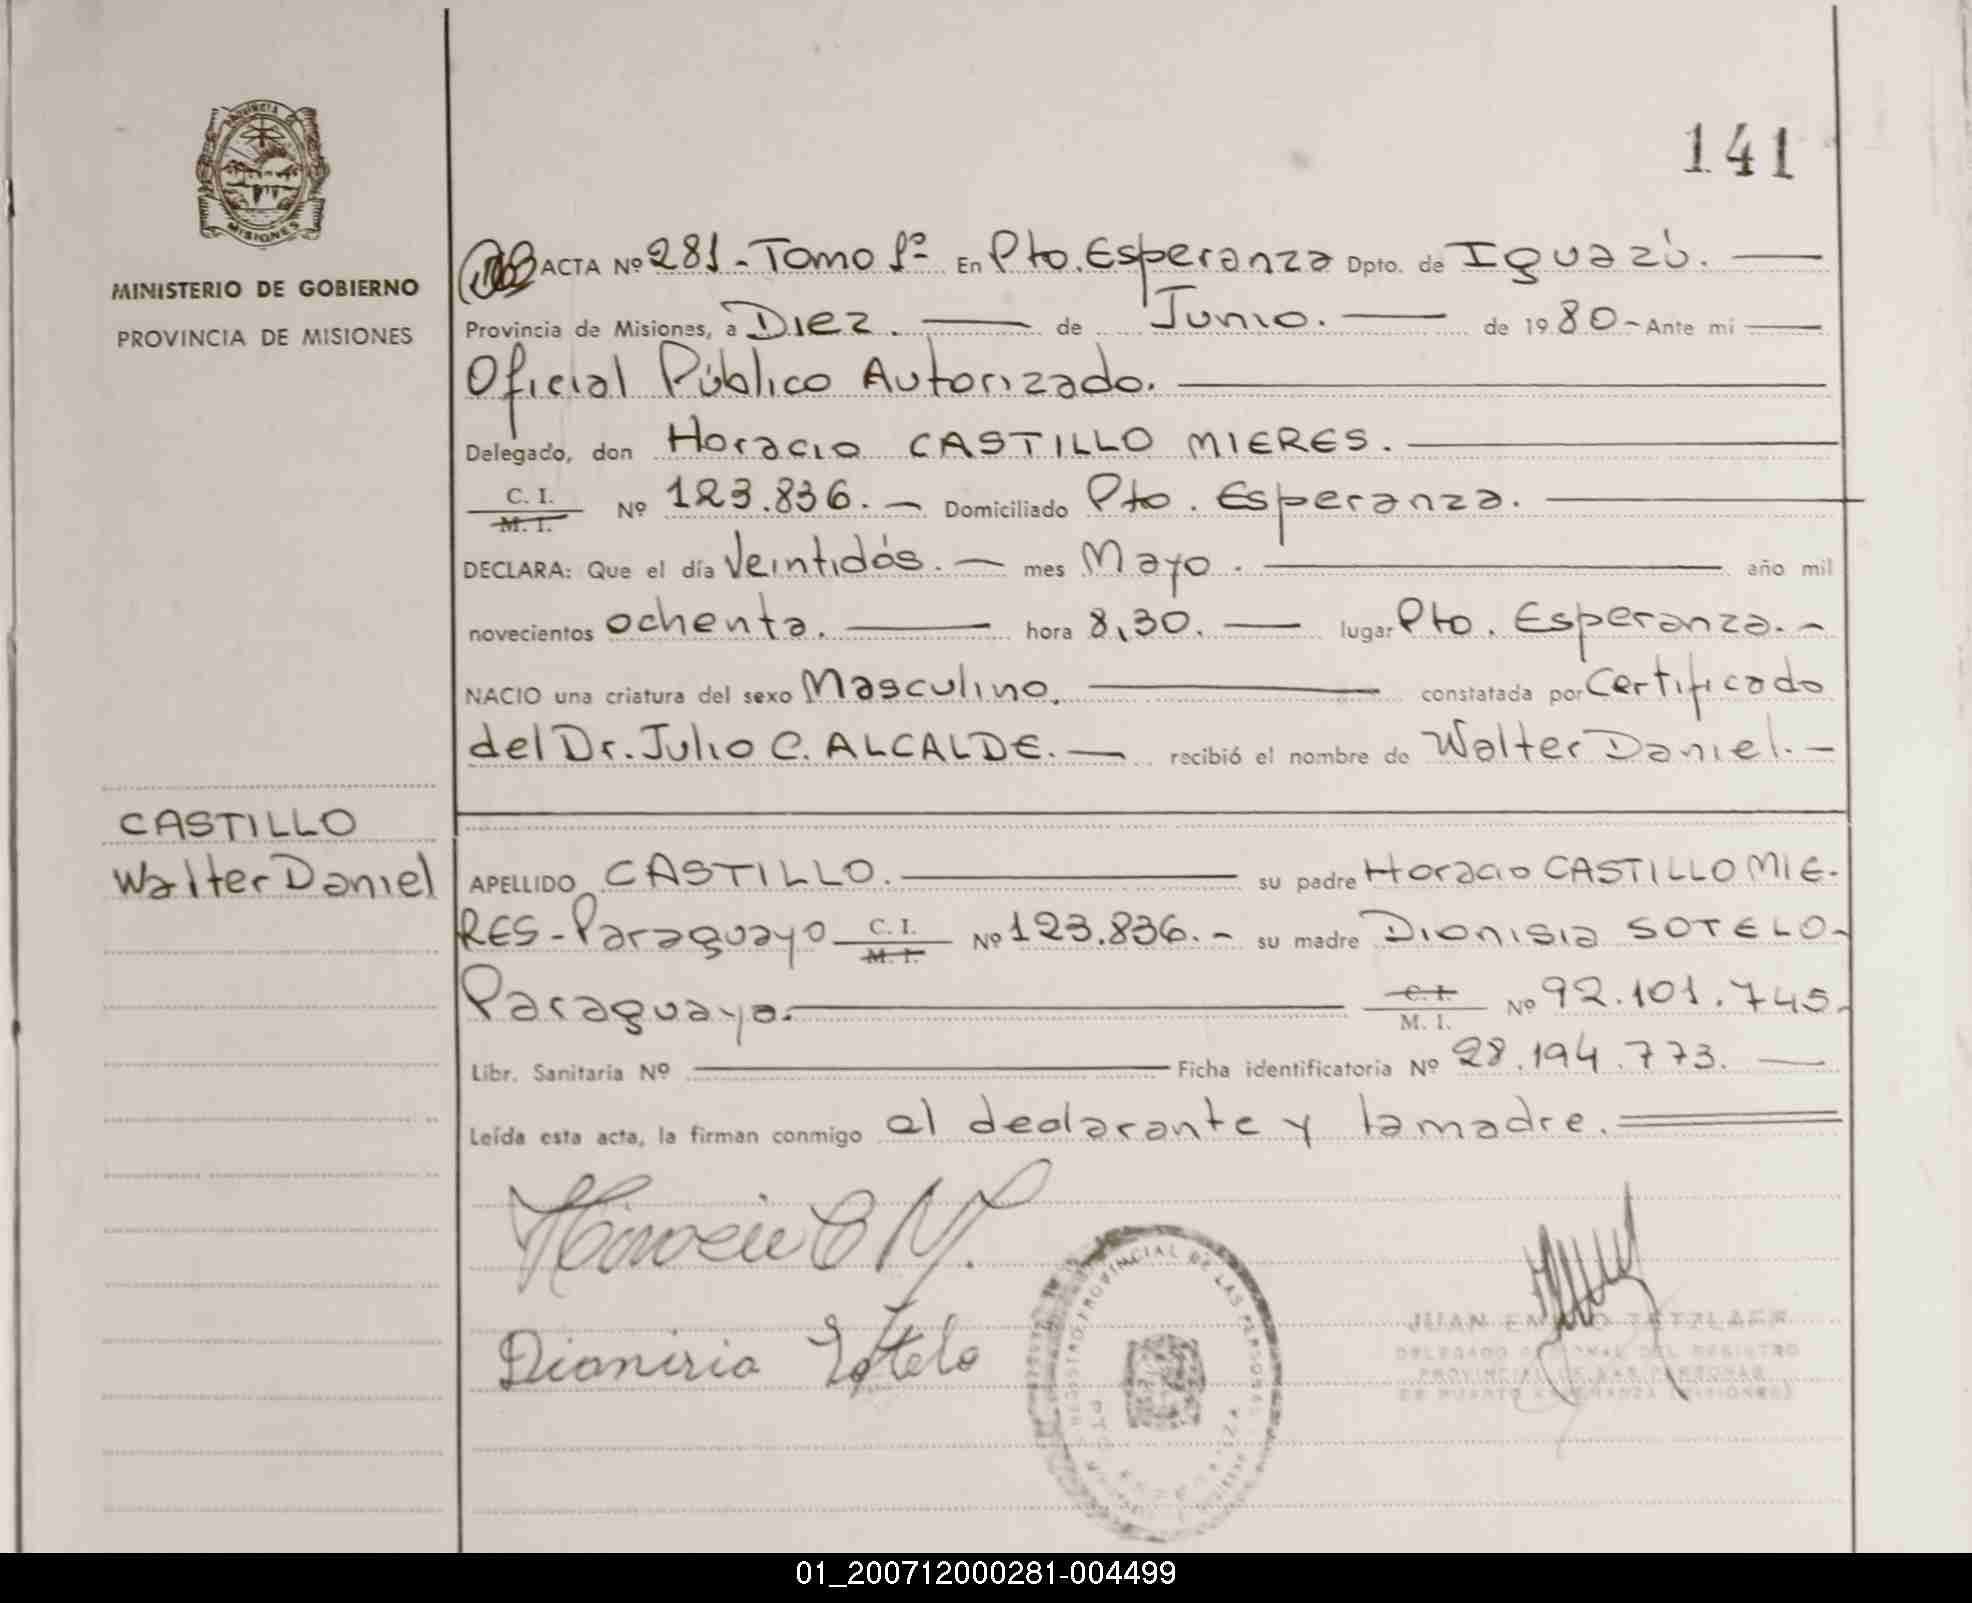 PROVINCIA DE
MISIONES
MINISTERIO DE GOBIERNO
PROVINCIA DE MISIONES
141
ACTA Nº 281 - Tomo 1º En Pto. Esperanza Dpto. de Iguazú.
Provincia de Misiones, a Diez. de Junio. de 1980 - Ante mi
Oficial Público Autorizado.
Delegado, don Horacio CASTILLO MIERES.
C. I.
M. I. Nº 123.836. - Domiciliado Pto. Esperanza.
DECLARA: Que el día Veintidós. - mes Mayo. año mil
novecientos ochenta. hora 8,30. lugar Pto. Esperanza. -
NACIO una criatura del sexo Masculino. constatada por Certificado
del Dr. Julio C. ALCALDE. recibió el nombre de Walter Daniel. -
CASTILLO
Walter Daniel
APELLIDO CASTILLO. su padre Horacio CASTILLO MIE-
RES - Paraguayo C. I.
M. I. Nº 123.836. - su madre Dionisia SOTELO -
Paraguaya. C. I.
M. I. Nº 92.101.745.
Libr. Sanitaria Nº Ficha identificatoria Nº 28.194.773.
Leída esta acta, la firman conmigo el declarante y la madre.
Horacio C M.
Dionisia Sotelo
REGISTRO PROVINCIAL DE LAS PERSONAS
JUAN TETZLAFF
DELEGADO DEL REGISTRO
PROVINCIAL DE LAS PERSONAS
DE PUERTO ESPERANZA (MISIONES)
01_200712000281-004499